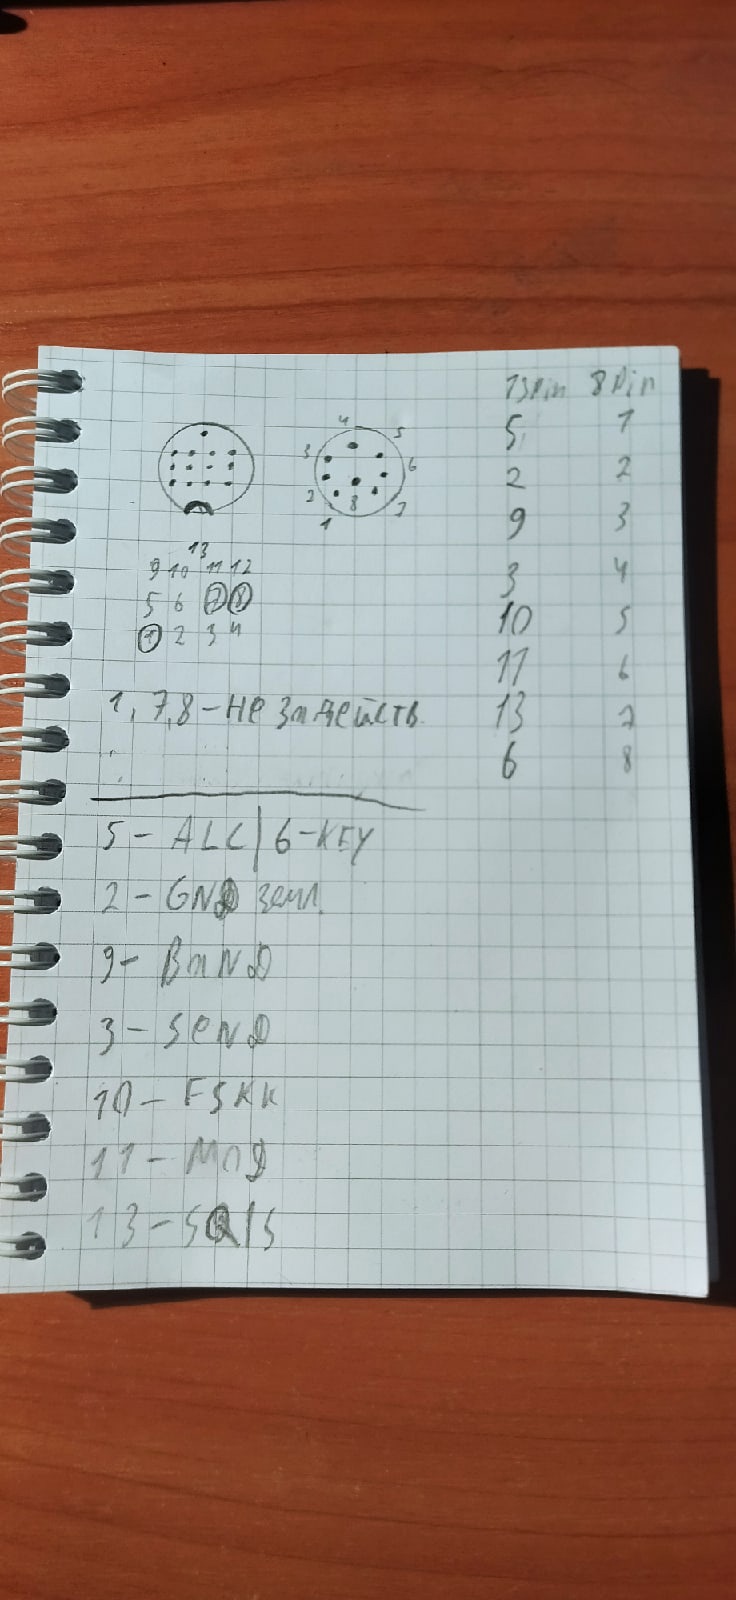 13Pin 8Pin
5 1
2 2
9 3
3 4
10 5
11 6
13 7
6 8
4 5
3 6
2 8 7
1
13
9 10 11 12
5 6 7 8
1 2 3 4
1, 7, 8 - не задейств.
5 - ALC | 6 - KEY
2 - GND земл.
9 - BaND
3 - SeND
10 - FSKK
11 - MOD
13 - SQ/S